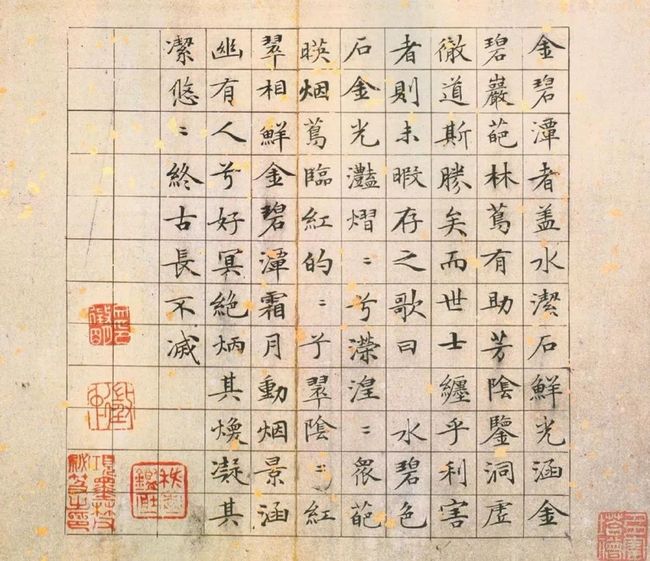 金碧潭者盖水潔石鮮光涵金
碧巖葩林蔦有助芳陰鑒洞虛
徹道斯勝矣而世士纏乎利害
者則未暇存之歌曰　水碧色
石金光灩熠〻兮濚湟〻衆葩
暎烟蔦臨紅的〻兮翠陰〻紅
翠相鮮金碧潭霜月動烟景涵
幽有人兮好冥絶炳其煥凝其
潔悠〻終古長不滅
項墨林父秘笈之印